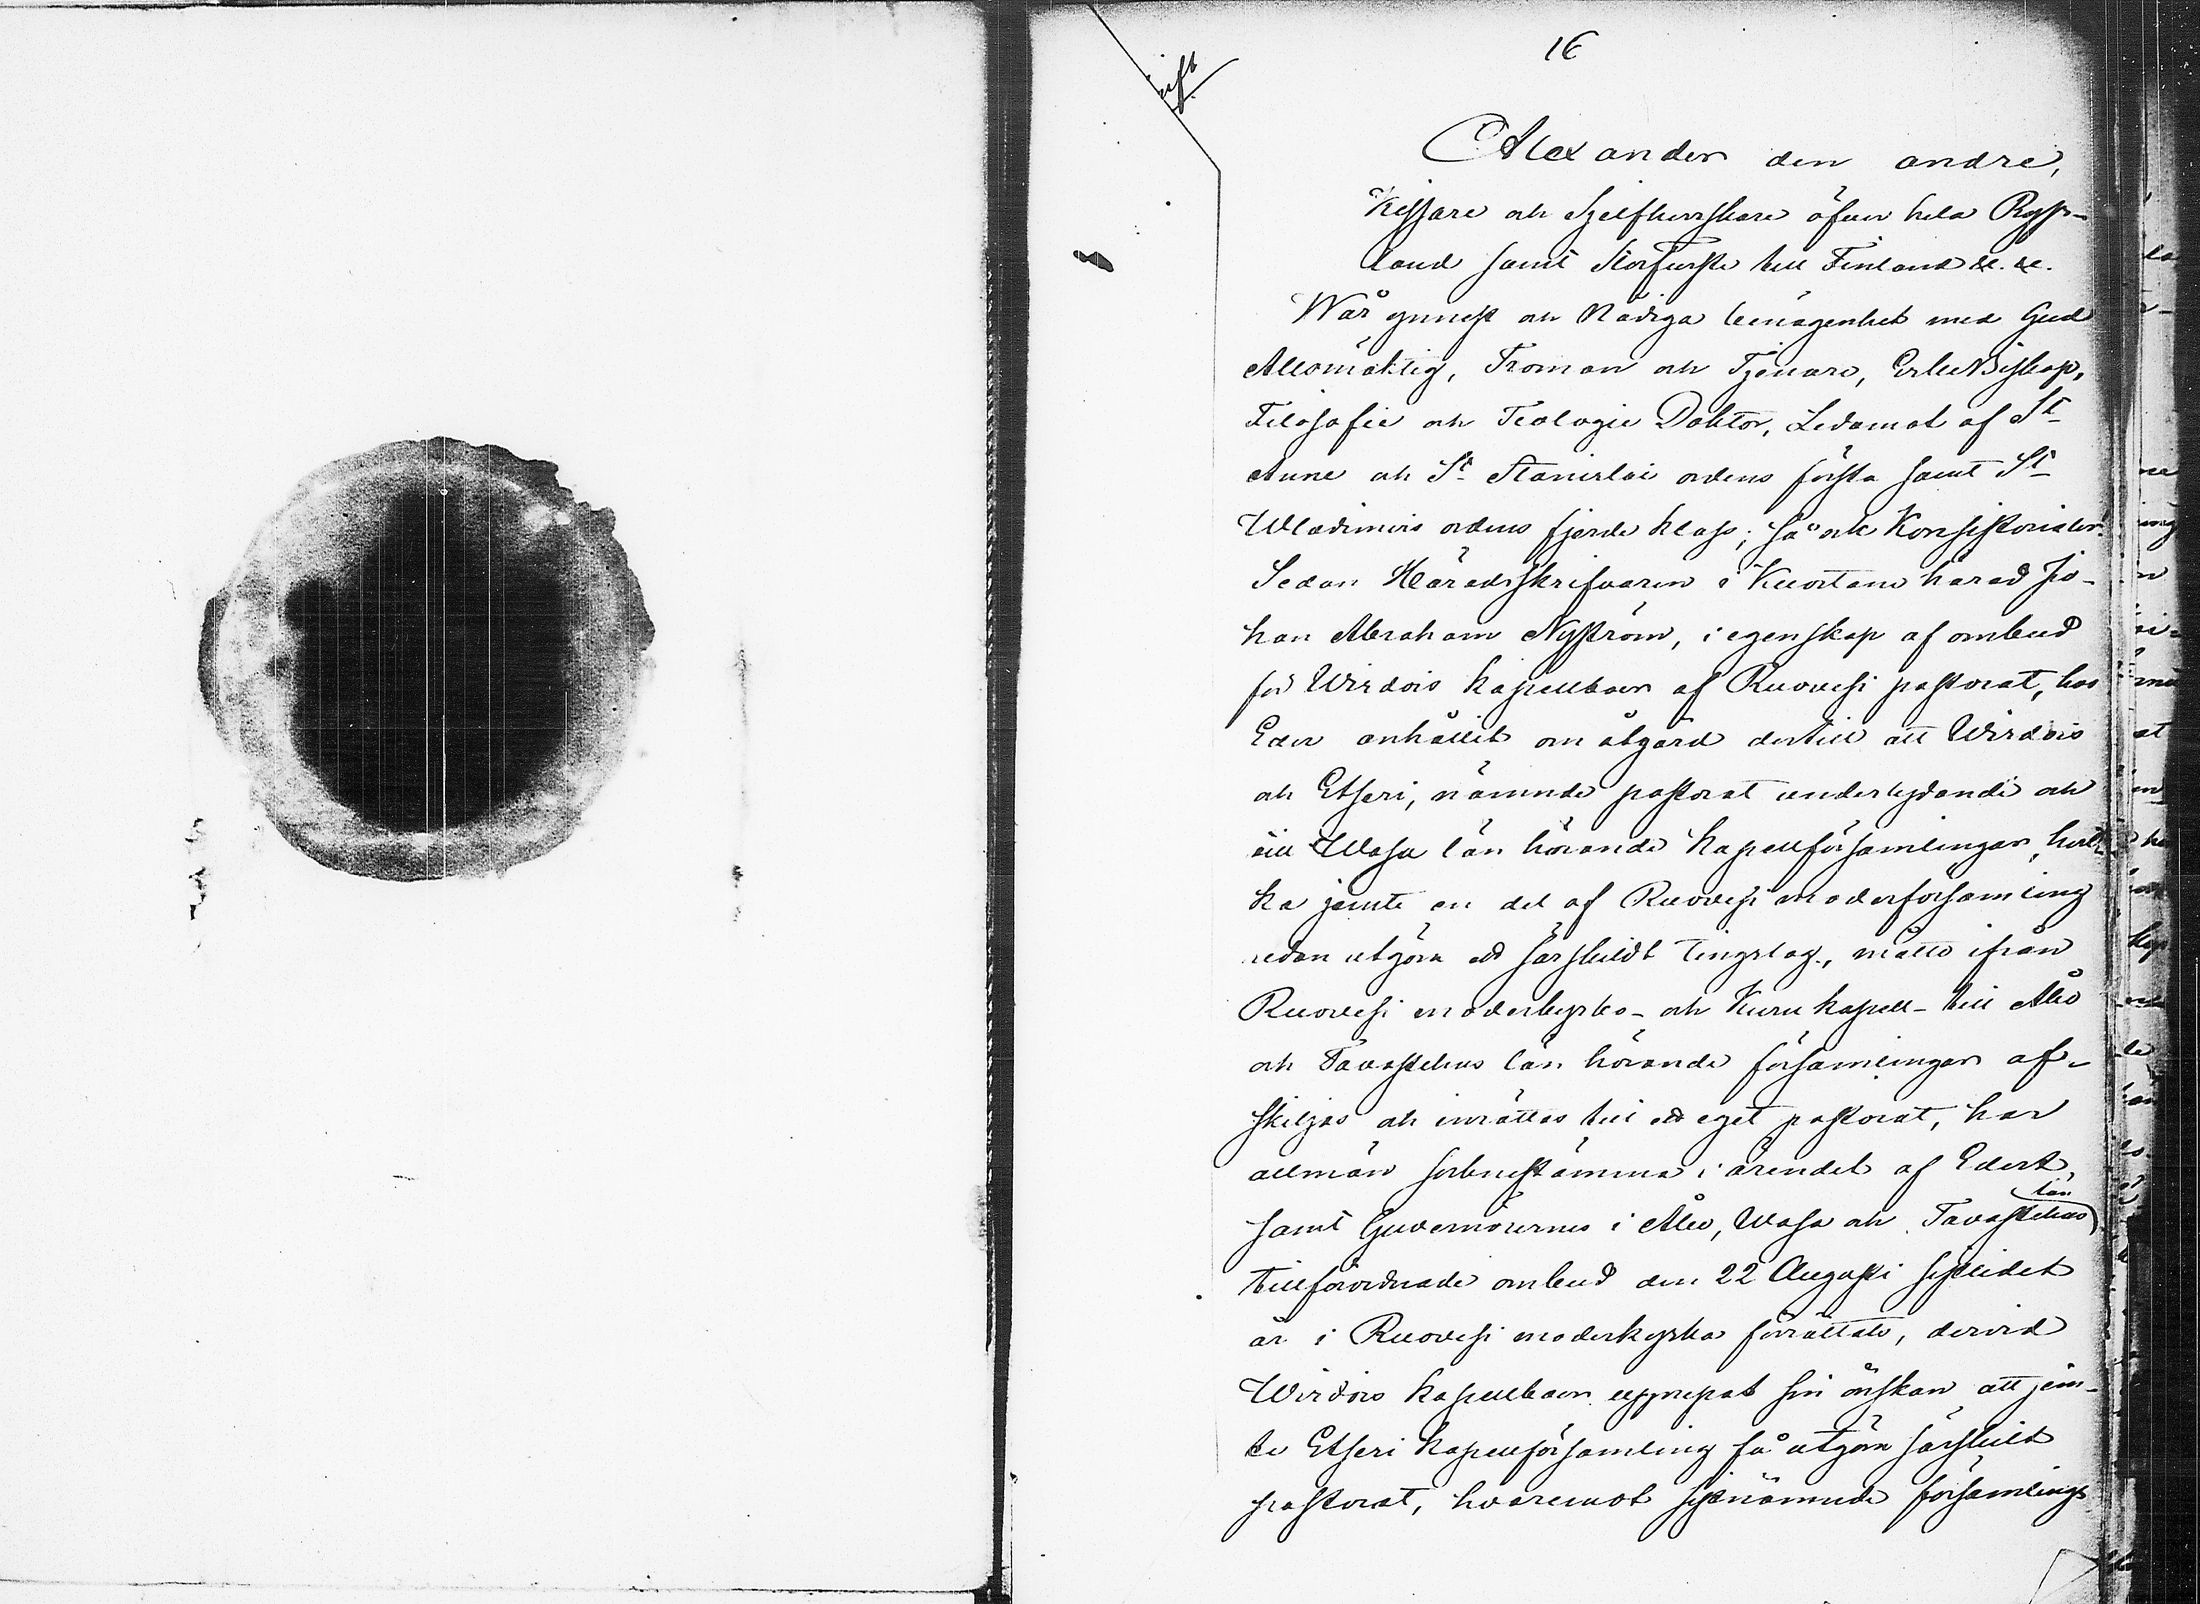 16
Alexander den andre,
Kejsare och Sjelfherrskare öfver hela Ryss-
land samt Storfurste till Finland &c. &c.
Wår ynnest och Nådiga benägenhet med Gud
Allsmäktig, Troman och Tjenare, ErkeBiskop,
Filosofie och Teologie Doktor, Ledamot af St
Anne och St Stanislai ordens första samt St
Wladimirs ordens fjerde klass; så ock Konsistorialer.
Sedan Häradsskrifvaren i Kuortane härad Jo-
han Abraham Nyström, i egenskap af ombud
för Wirdois kapellboer af Ruovesi pastorat, hos
Eder anhållit om åtgärd dertill att Wirdois
och Etseri, nämnde pastorat underlydande och
till Wasa län hörande kapellförsamlingar, hvil-
ka jemte en del af Ruovesi moderförsamling
redan utgöra ett särskildt tingslag, måtte ifrån
Ruovesi moderkyrko- och Kuru kapell- till Åbo
och Tavastehus län hörande församlingar af-
skiljas och inrättas till ett eget pastorat, har
allmän sockenstämma i ärendet af Edert,
samt Guvernörernes i Åbo, Wasa och Tavastehus län
tillförordnade ombud den 22 Augusti sistlidet
år i Ruovesi moderkyrka förrättats, dervid
Wirdois kapellboer upprepat sin önskan att jem-
te Etseri kapellförsamling få utgöra särskildt
pastorat, hvaremot sistnämnde församlings